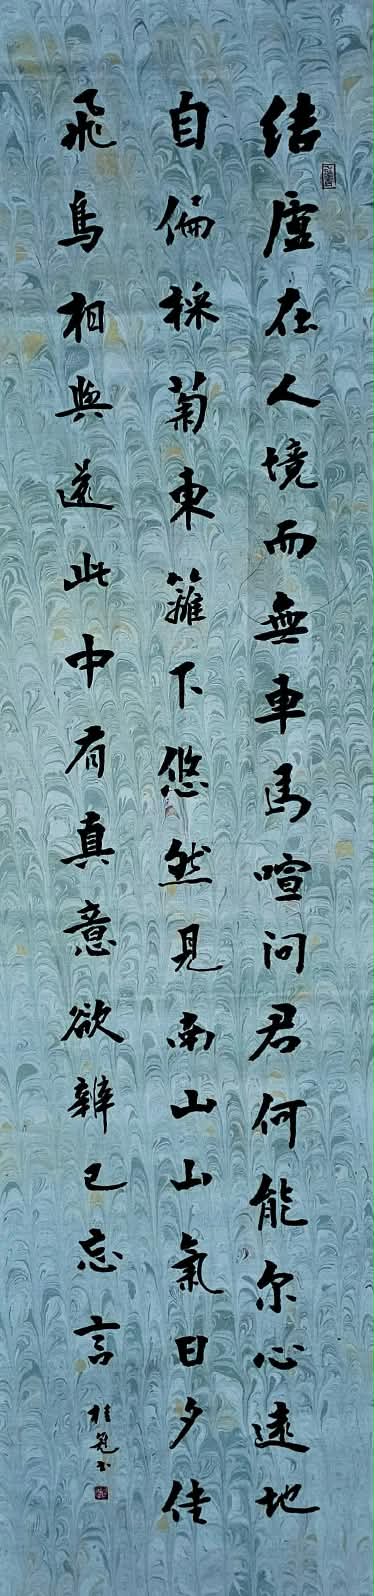 結廬在人境而無車馬喧問君何能尔心遠地
自偏採菊東籬下悠然見南山山氣日夕佳
飛鳥相與還此中有真意欲辨已忘言